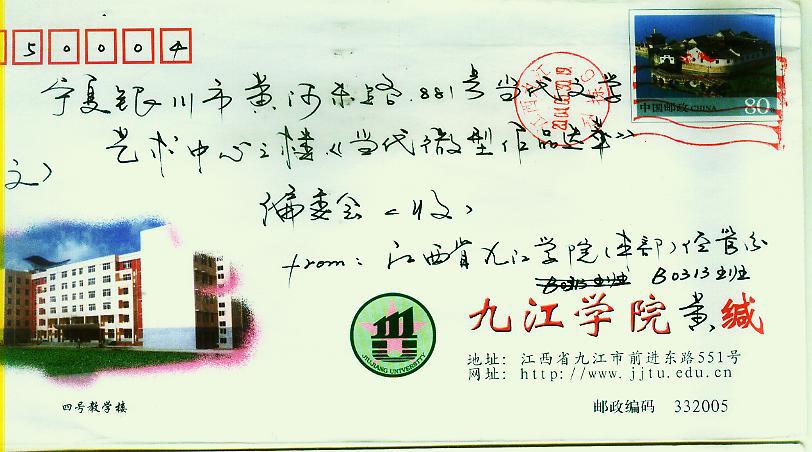 50004
宁夏银川市黄河东路881号当代文学
艺术中心三楼《当代微型作品选萃》
文)
编委会(收)
from: 江西省九江学院(本部)经管分
B0313班 B0313班
中国邮政 CHINA 80
JIUJIANG UNIVERSITY
九江学院 黄 缄
地址: 江西省九江市前进东路551号
网址: http://www.jjtu.edu.cn
四号教学楼
邮政编码 332005